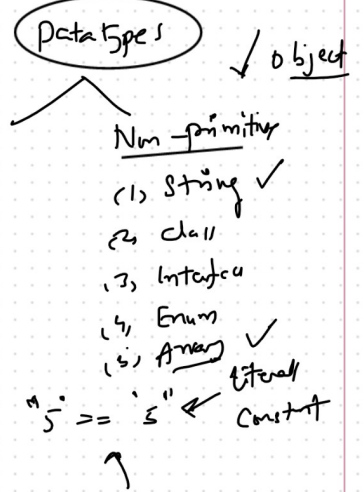 Datatypes
object
Non-primitive
(1) String
(2) class
(3) Interface
(4) Enum
(5) Array
"5" == "5" literal
constant